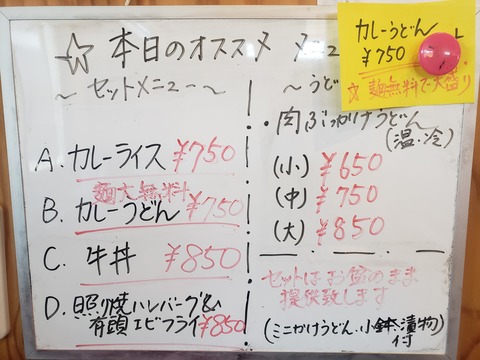 ☆ 本日のオススメ メニュ
〜 セットメニュー 〜
A. カレーライス ¥750
麺大無料
B. カレーうどん ¥750
C. 牛丼 ¥850
D. 照り焼ハンバーグ&
有頭エビフライ ¥850
カレーうどん
¥750
☆ 麺無料で大盛り
〜 うど
・肉ぶっかけうどん
(温・冷)
(小) ¥650
(中) ¥750
(大) ¥850
セットはお盆のまま
提供致します
(ミニかけうどん・小鉢・漬物)
付